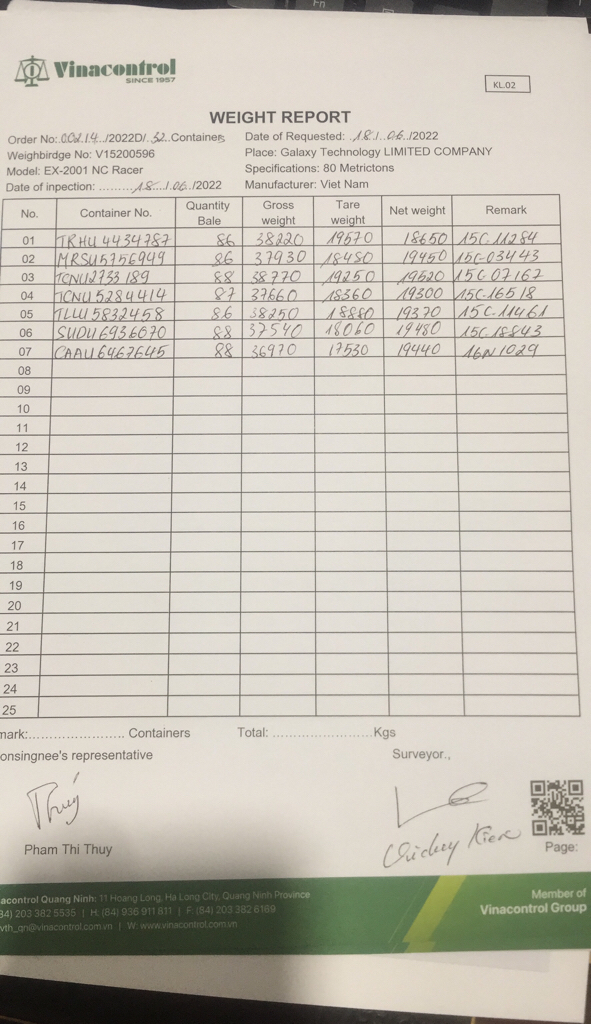 Vinacontrol
SINCE 1957
KL.02
WEIGHT REPORT
Order No: 00214../2022D/. 32..Containers Date of Requested: .18./..06../2022
Weighbirdge No: V15200596 Place: Galaxy Technology LIMITED COMPANY
Model: EX-2001 NC Racer Specifications: 80 Metrictons
Date of inpection: ..........18..../.06./2022 Manufacturer: Viet Nam
No. Container No. Quantity Bale Gross weight Tare weight Net weight Remark
01 TRHU 4434787 86 38220 19570 18650 15C.11284
02 MRSU5756949 86 37930 18480 19450 15C-03443
03 TCNU2733189 88 38770 19250 19520 15C 07162
04 TCNU 5284414 87 37660 18360 19300 15C-16518
05 TLLU 5832458 86 38250 18880 19370 15C.11461
06 SUDU6936070 88 37540 18060 19480 15C.18843
07 CAAU 6467645 88 36970 17530 19440 16N 1029
08
09
10
11
12
13
14
15
16
17
18
19
20
21
22
23
24
25
mark:........................ Containers Total: ......................... Kgs
onsingnee's representative Surveyor.,
Thuý
Pham Thi Thuy
Page:
acontrol Quang Ninh: 11 Hoang Long, Ha Long City, Quang Ninh Province
34) 203 382 5535 | H. (84) 936 911 811 | F: (84) 203 382 6189
vth_qn@vinacontrol.com.vn | W: www.vinacontrol.com.vn
Member of
Vinacontrol Group